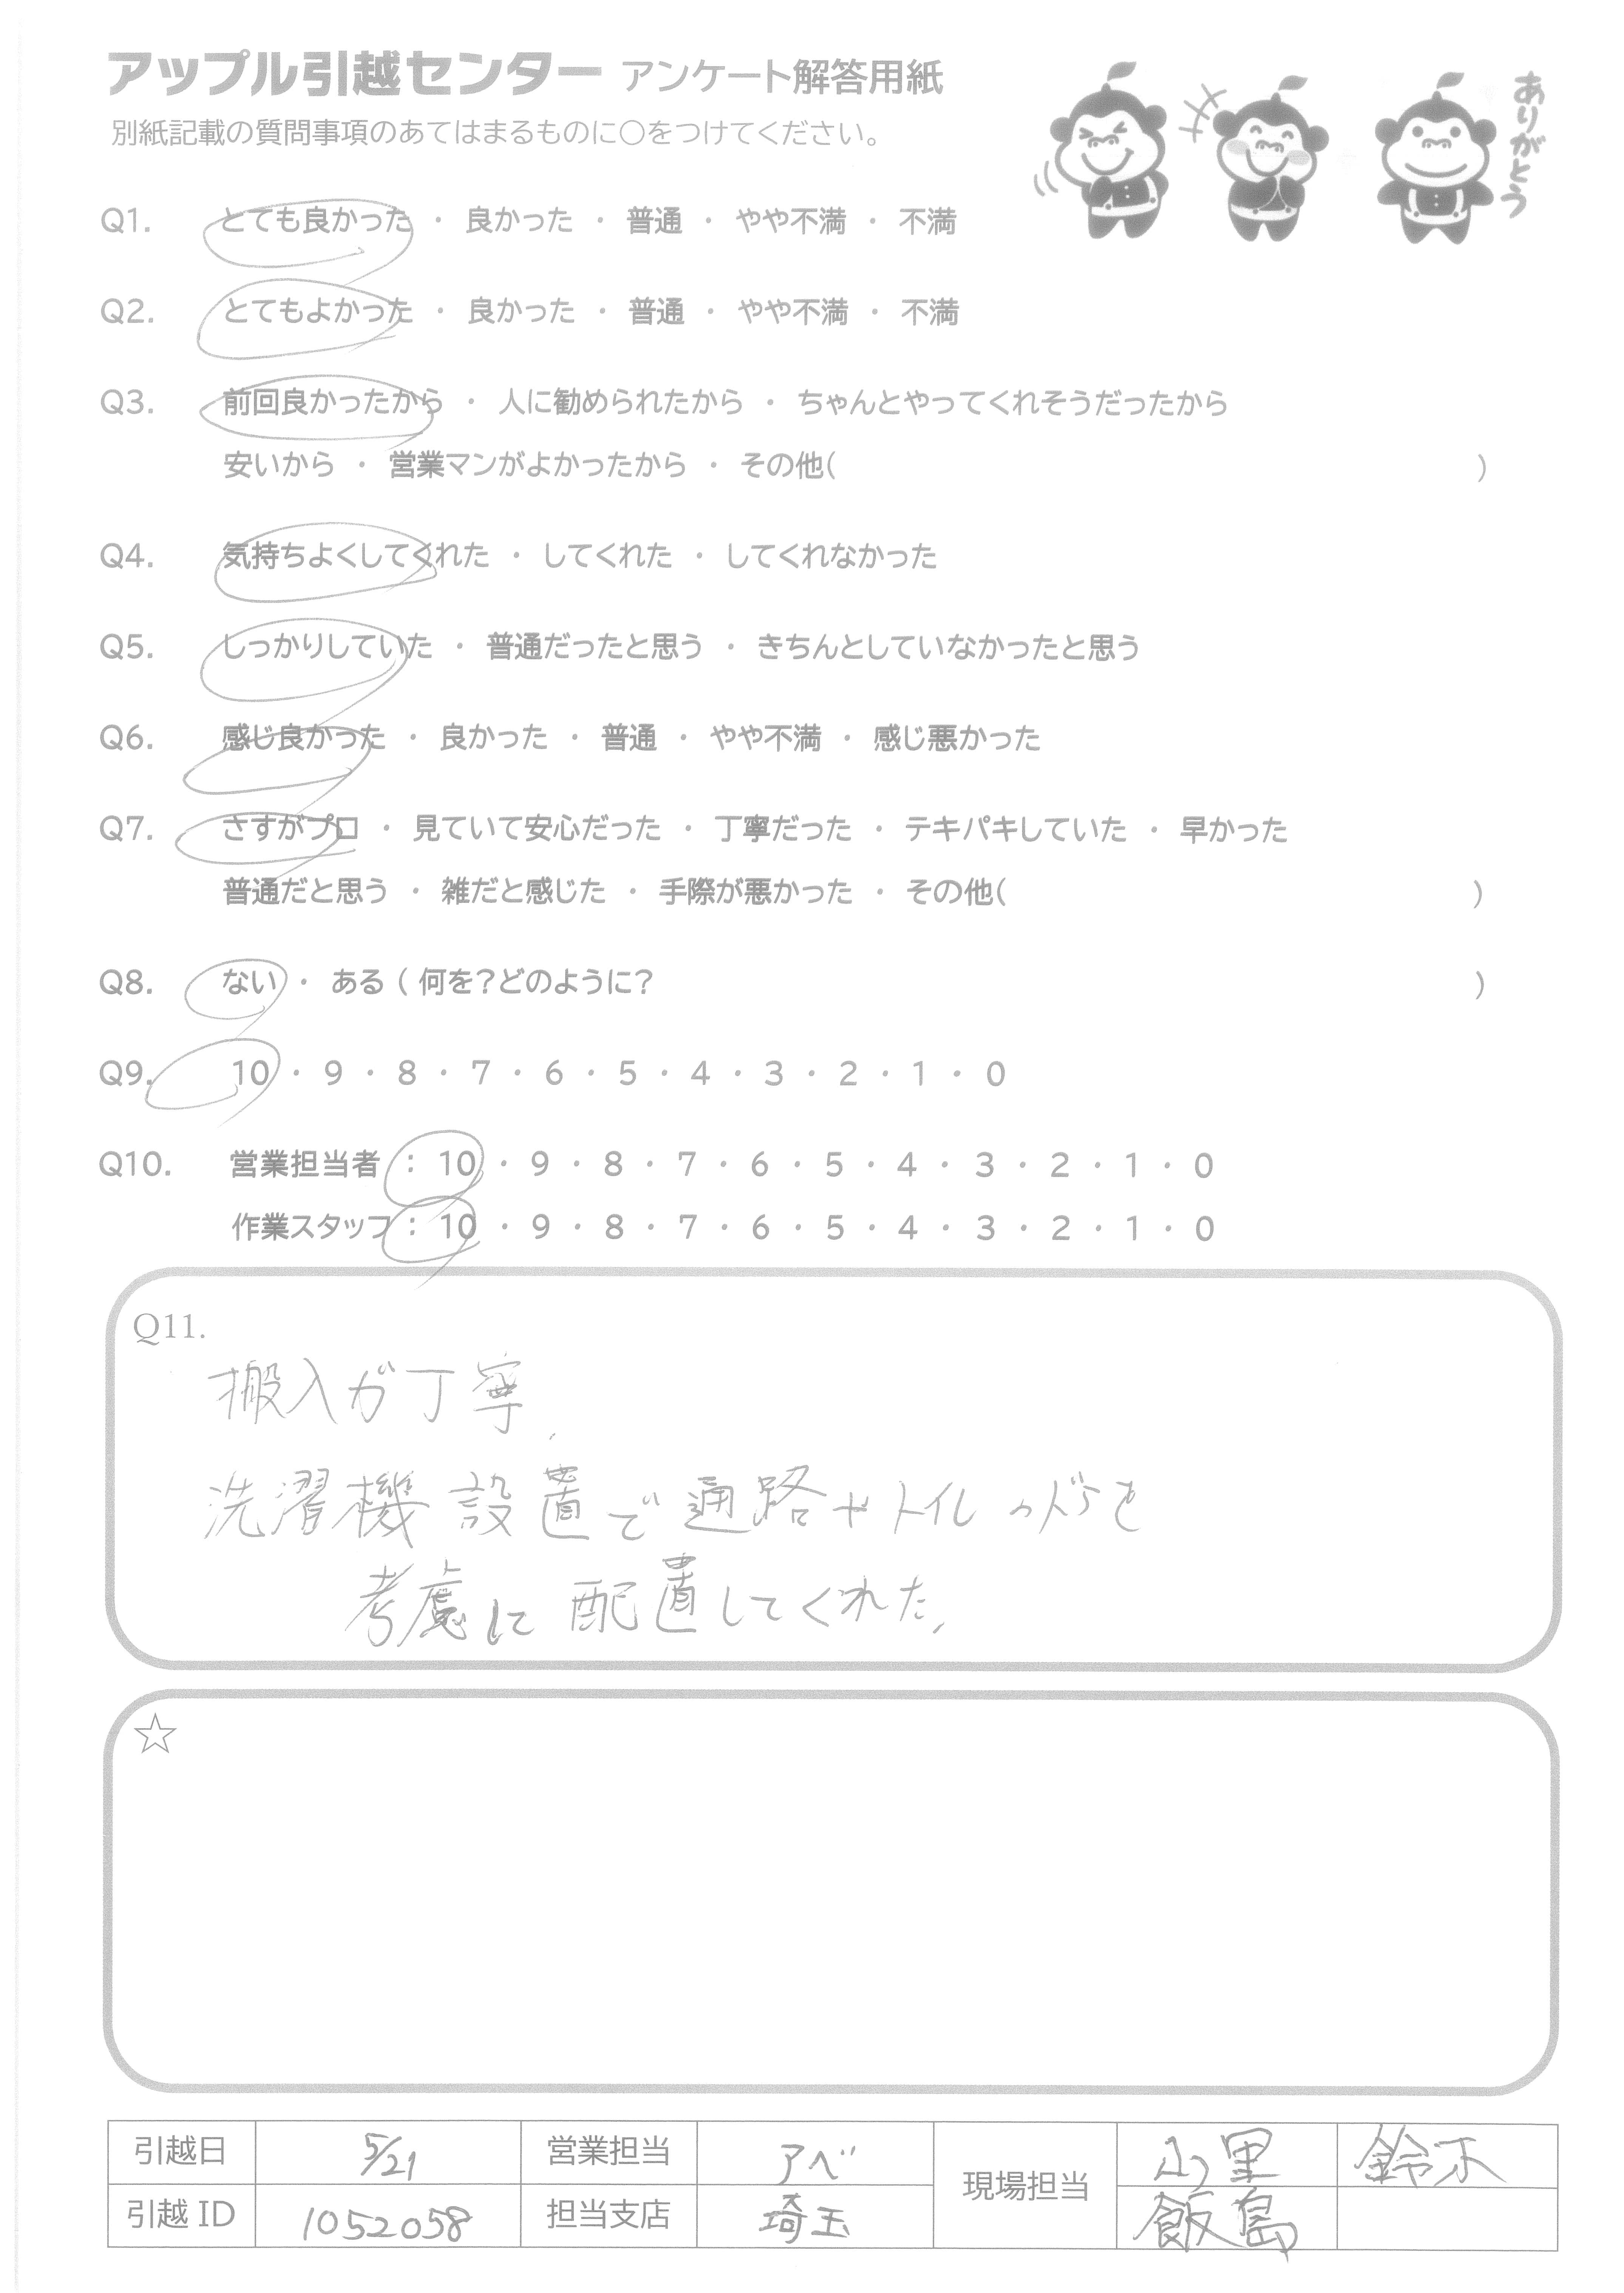 アップル引越センター アンケート解答用紙
別紙記載の質問事項のあてはまるものに〇をつけてください。
ありがとう
Q1. とても良かった ・ 良かった ・ 普通 ・ やや不満 ・ 不満
Q2. とてもよかった ・ 良かった ・ 普通 ・ やや不満 ・ 不満
Q3. 前回良かったから ・ 人に勧められたから ・ ちゃんとやってくれそうだったから
安いから ・ 営業マンがよかったから ・ その他( )
Q4. 気持ちよくしてくれた ・ してくれた ・ してくれなかった
Q5. しっかりしていた ・ 普通だったと思う ・ きちんとしていなかったと思う
Q6. 感じ良かった ・ 良かった ・ 普通 ・ やや不満 ・ 感じ悪かった
Q7. さすがプロ ・ 見ていて安心だった ・ 丁寧だった ・ テキパキしていた ・ 早かった
普通だと思う ・ 雑だと感じた ・ 手際が悪かった ・ その他( )
Q8. ない ・ ある ( 何を?どのように? )
Q9. 10 ・ 9 ・ 8 ・ 7 ・ 6 ・ 5 ・ 4 ・ 3 ・ 2 ・ 1 ・ 0
Q10. 営業担当者 : 10 ・ 9 ・ 8 ・ 7 ・ 6 ・ 5 ・ 4 ・ 3 ・ 2 ・ 1 ・ 0
作業スタッフ : 10 ・ 9 ・ 8 ・ 7 ・ 6 ・ 5 ・ 4 ・ 3 ・ 2 ・ 1 ・ 0
Q11.
搬入が丁寧、
洗濯機設置で通路やトイレのドアを
考慮に配置してくれた、
☆
引越日 5/21 営業担当 アベ 現場担当 山里 鈴木
引越 ID 1052058 担当支店 埼玉 飯島